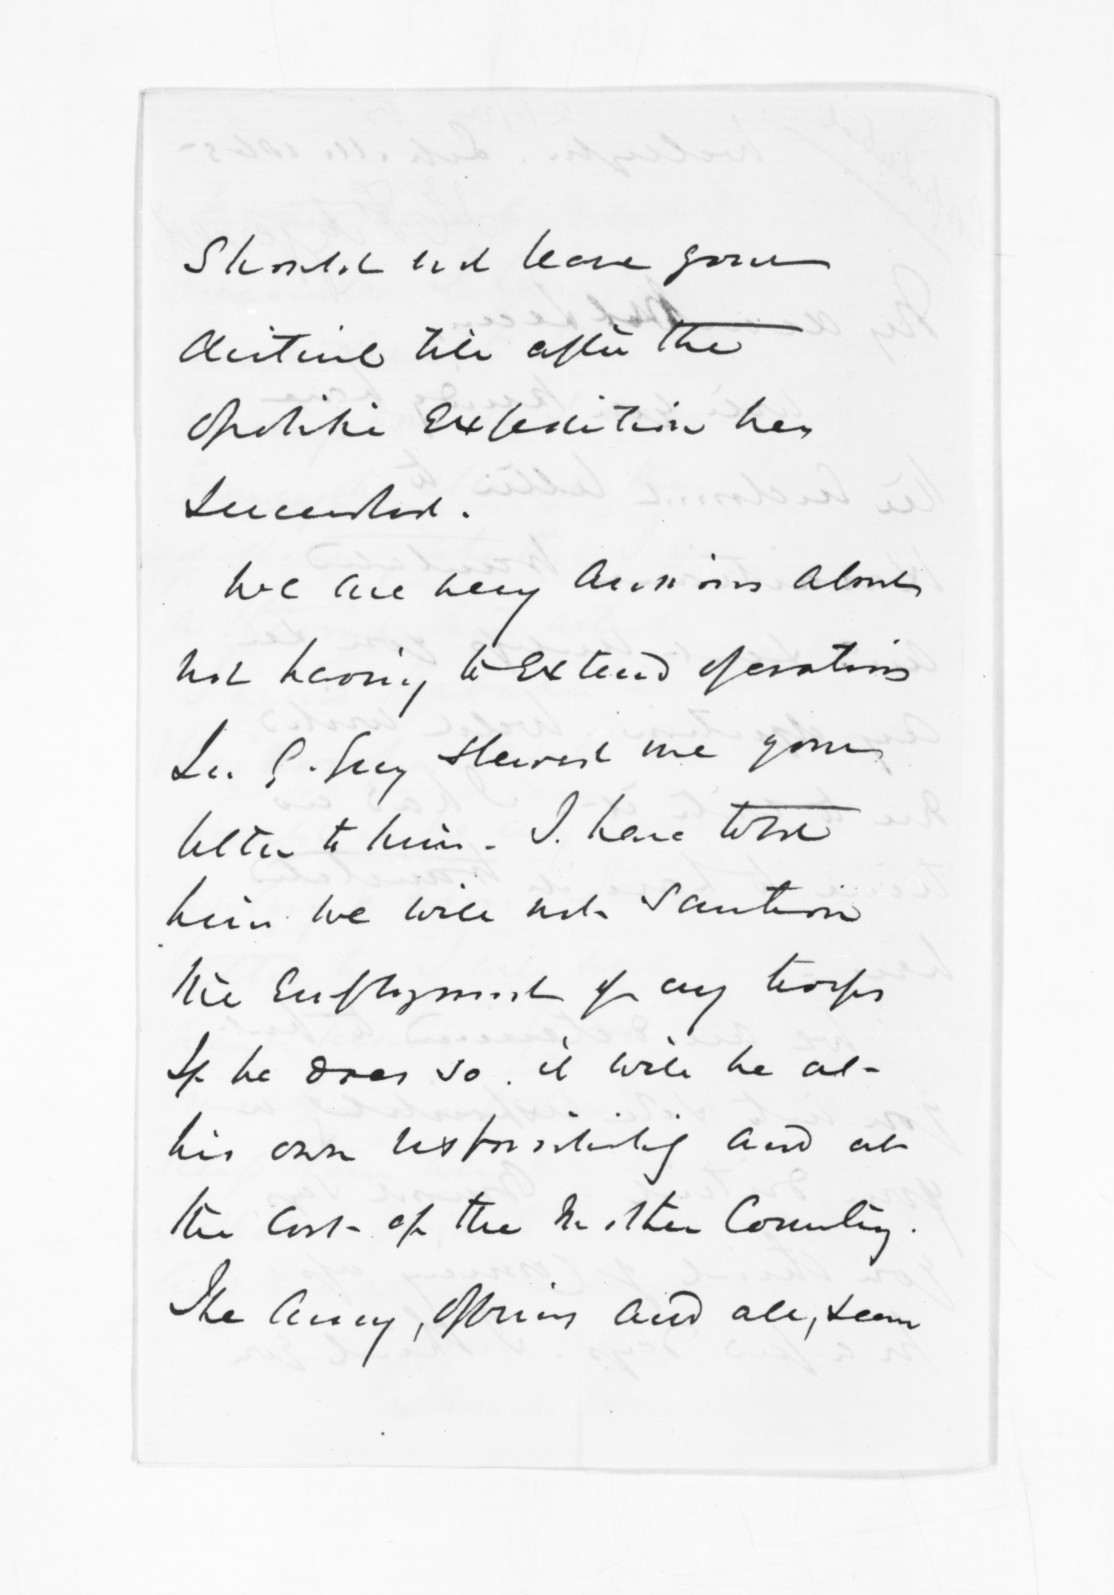 should not leave your
district till after the
Opotiki Expedition has
succeeded.
We are very anxious about
not having to Extend operations
Sir G. Grey shewed me your
letter to him - I have told
him we will not sanction
the Employment of any troops
If he does so it will be at
his own responsibility and at
the Cost of the Mother Country.
The Army, officers and all, seem